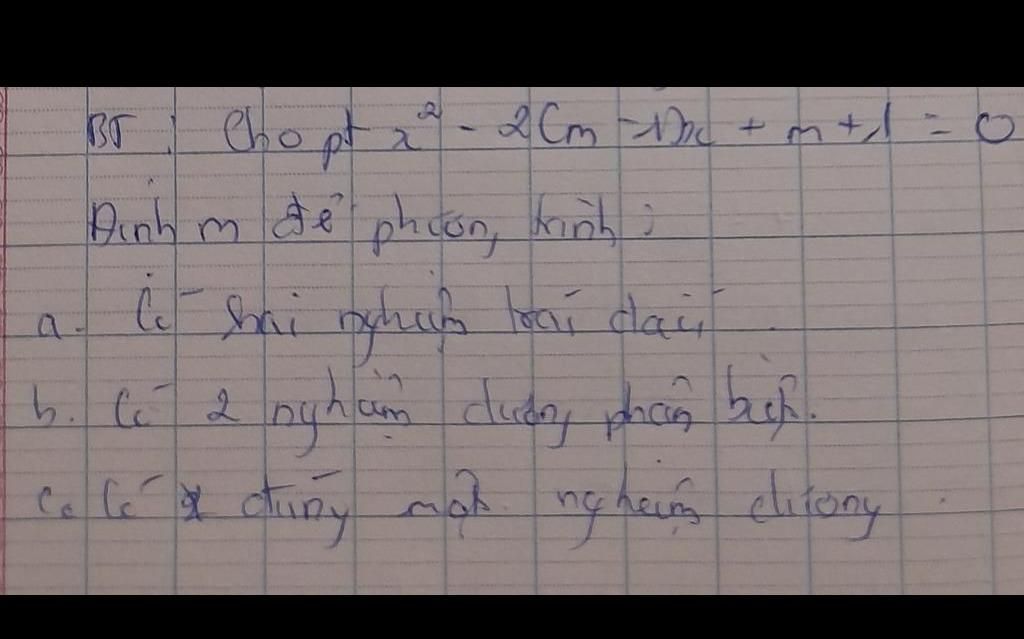 BT : Cho pt x² - 2(m - 1)x + m + 1 = 0
Định m để phương trình :
a. Có hai nghiệm trái dấu
b. Có 2 nghiệm dương phân biệt.
c. Có đúng một nghiệm dương.